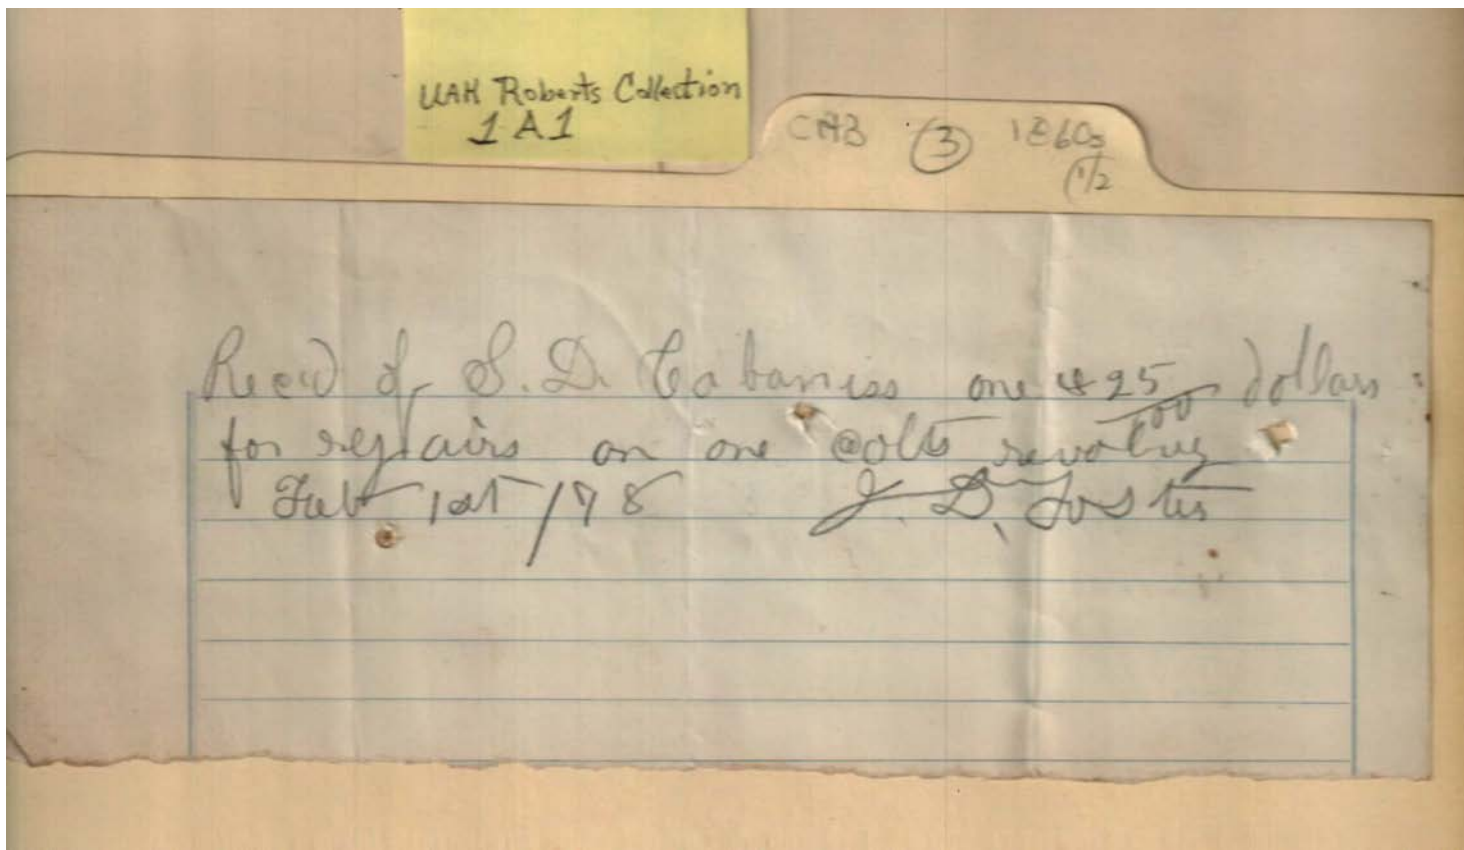 UAH Roberts Collection
1A1
CAB ③ 1860s
1/2
Recd of S. D. Cabaniss one & 25/100 dollars
for repairs on one colts
Feb 1st /78 J. D. Foster